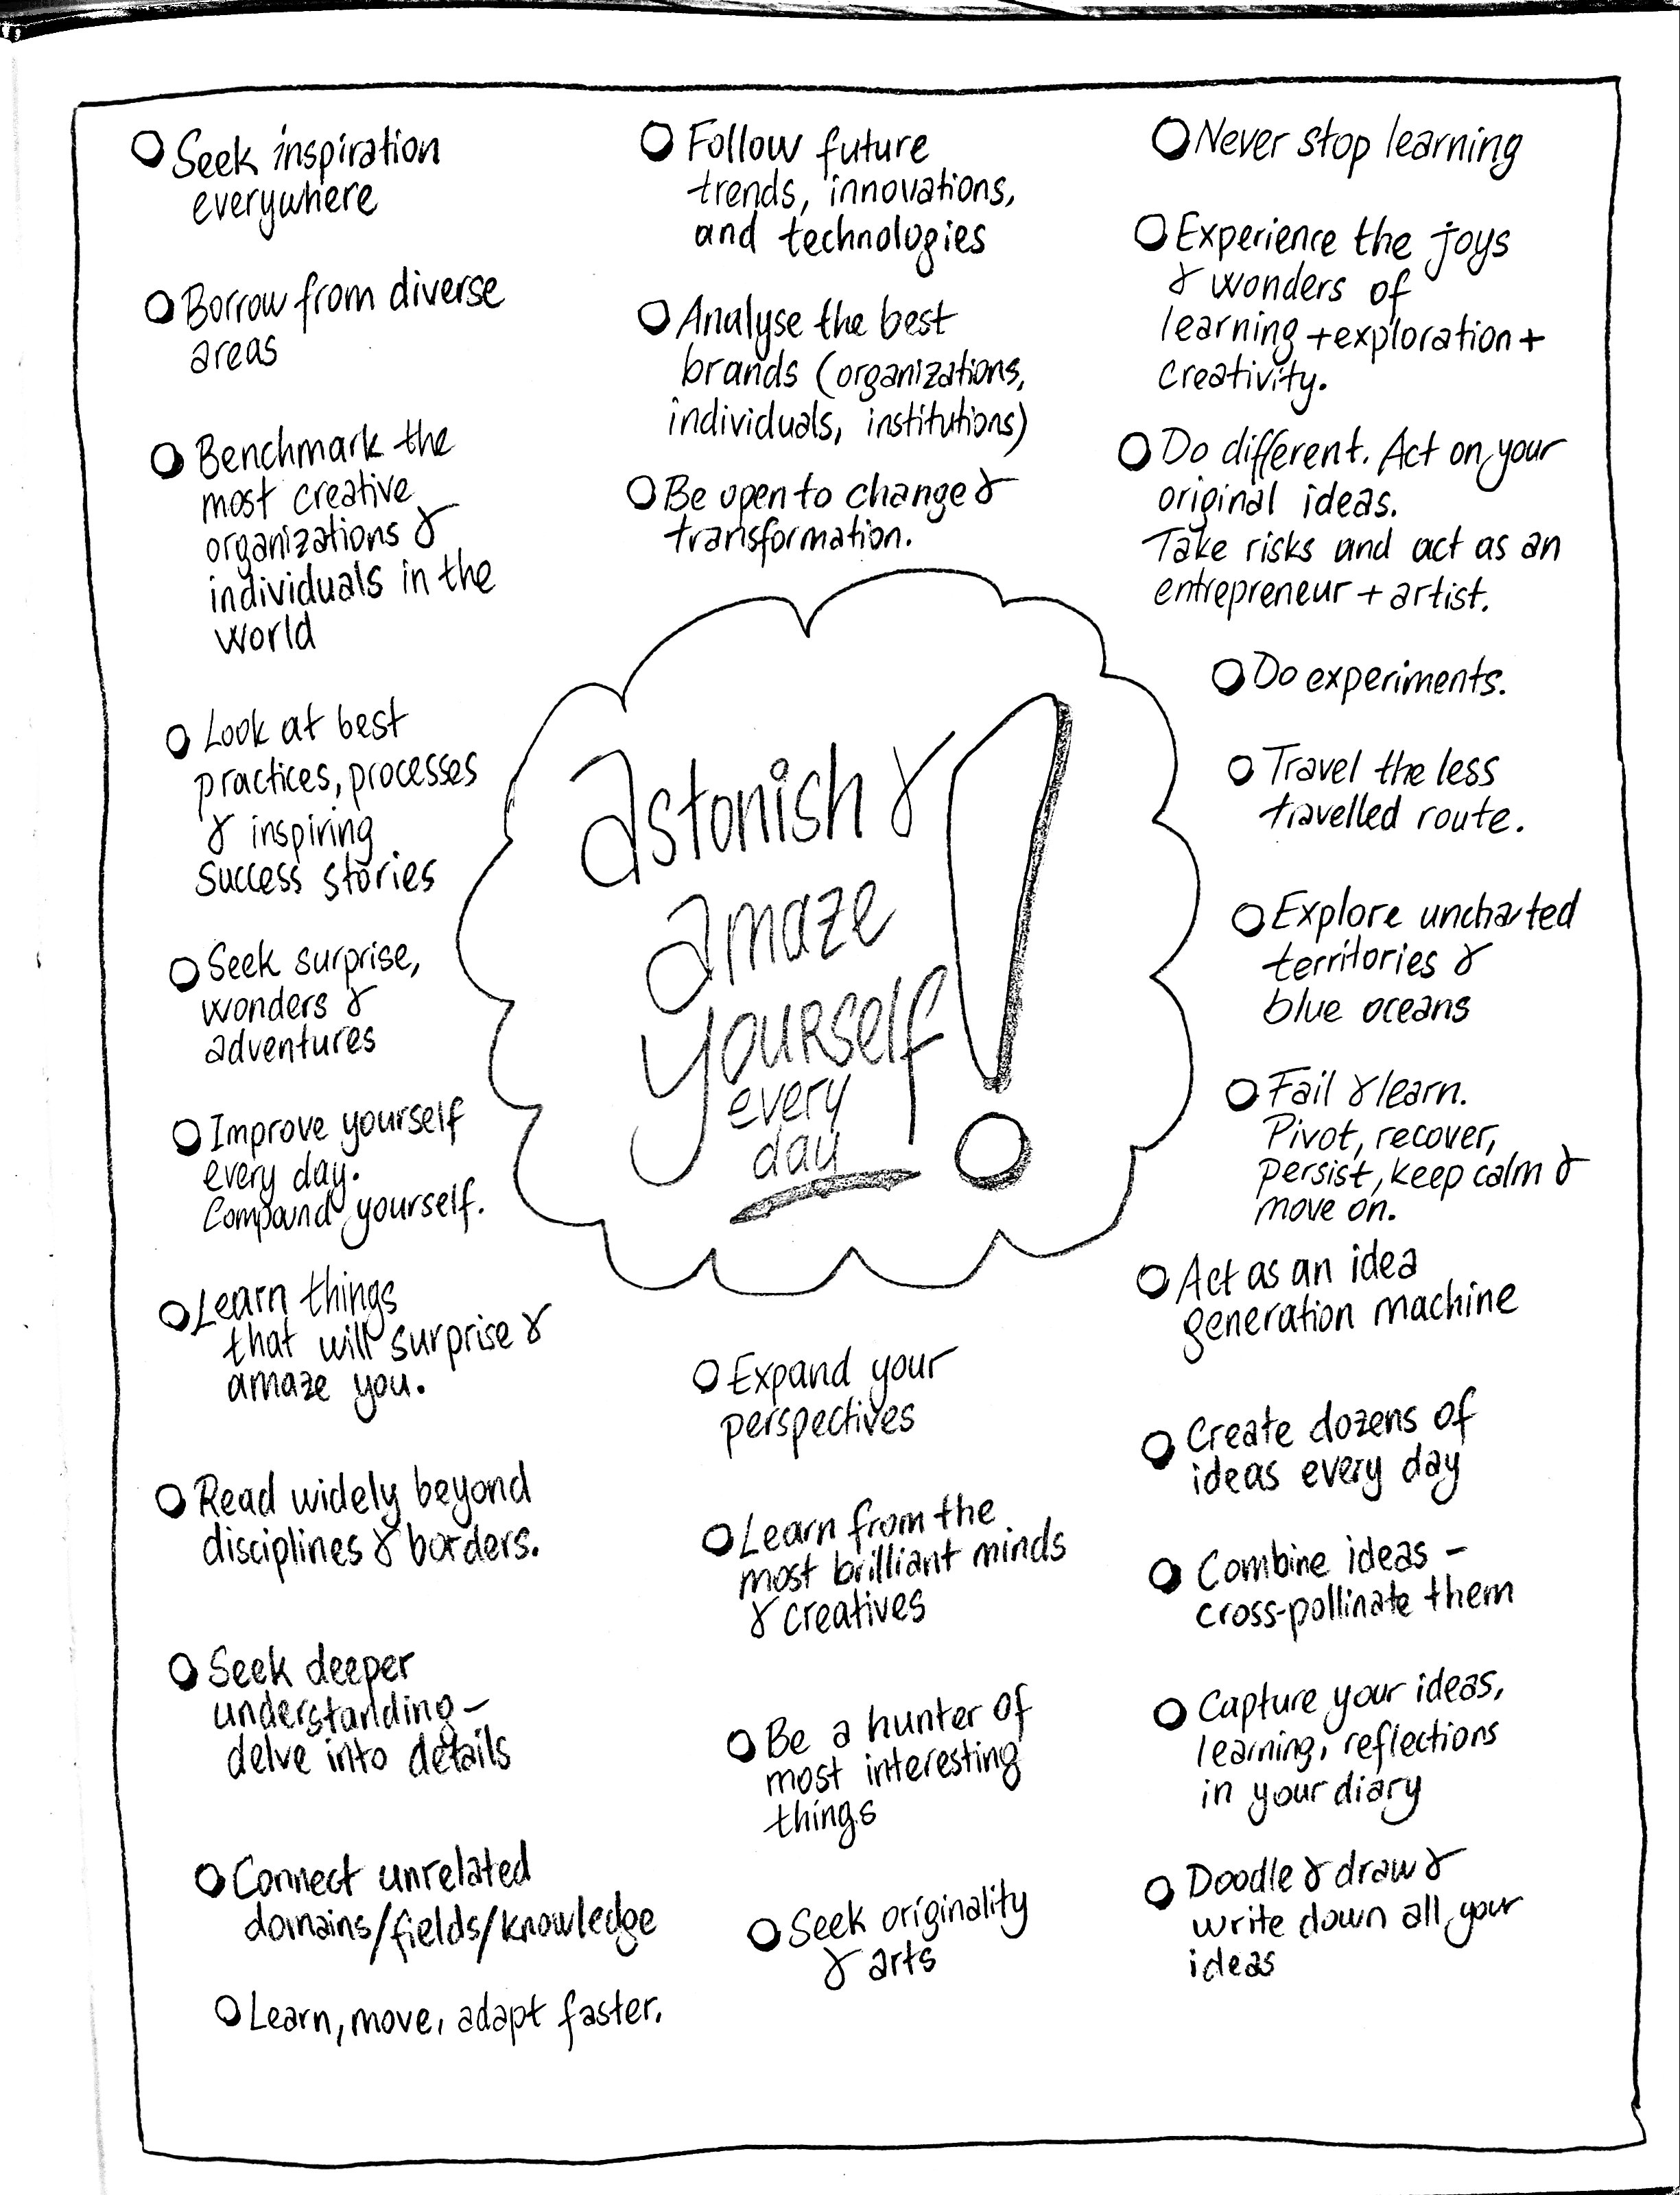 Seek inspiration
everywhere
Borrow from diverse
areas
Benchmark the
most creative
organizations &
individuals in the
world
Look at best
practices, processes
& inspiring
success stories
Seek surprise,
wonders &
adventures
Improve yourself
every day.
Compound yourself.
Learn things
that will surprise &
amaze you.
Read widely beyond
disciplines & borders.
Seek deeper
understanding –
delve into details
Connect unrelated
domains/fields/knowledge
Learn, move, adapt faster.
Follow future
trends, innovations,
and technologies
Analyse the best
brands (organizations,
individuals, institutions)
Be open to change &
transformation.
astonish &
amaze
yourself
every
day!
Expand your
perspectives
Learn from the
most brilliant minds
& creatives
Be a hunter of
most interesting
things
Seek originality
& arts
Never stop learning
Experience the joys
& wonders of
learning + exploration +
creativity.
Do different. Act on your
original ideas.
Take risks and act as an
entrepreneur + artist.
Do experiments.
Travel the less
travelled route.
Explore uncharted
territories &
blue oceans
Fail & learn.
Pivot, recover,
persist, keep calm &
move on.
Act as an idea
generation machine
Create dozens of
ideas every day
Combine ideas –
cross-pollinate them
Capture your ideas,
learning, reflections
in your diary
Doodle & draw &
write down all your
ideas